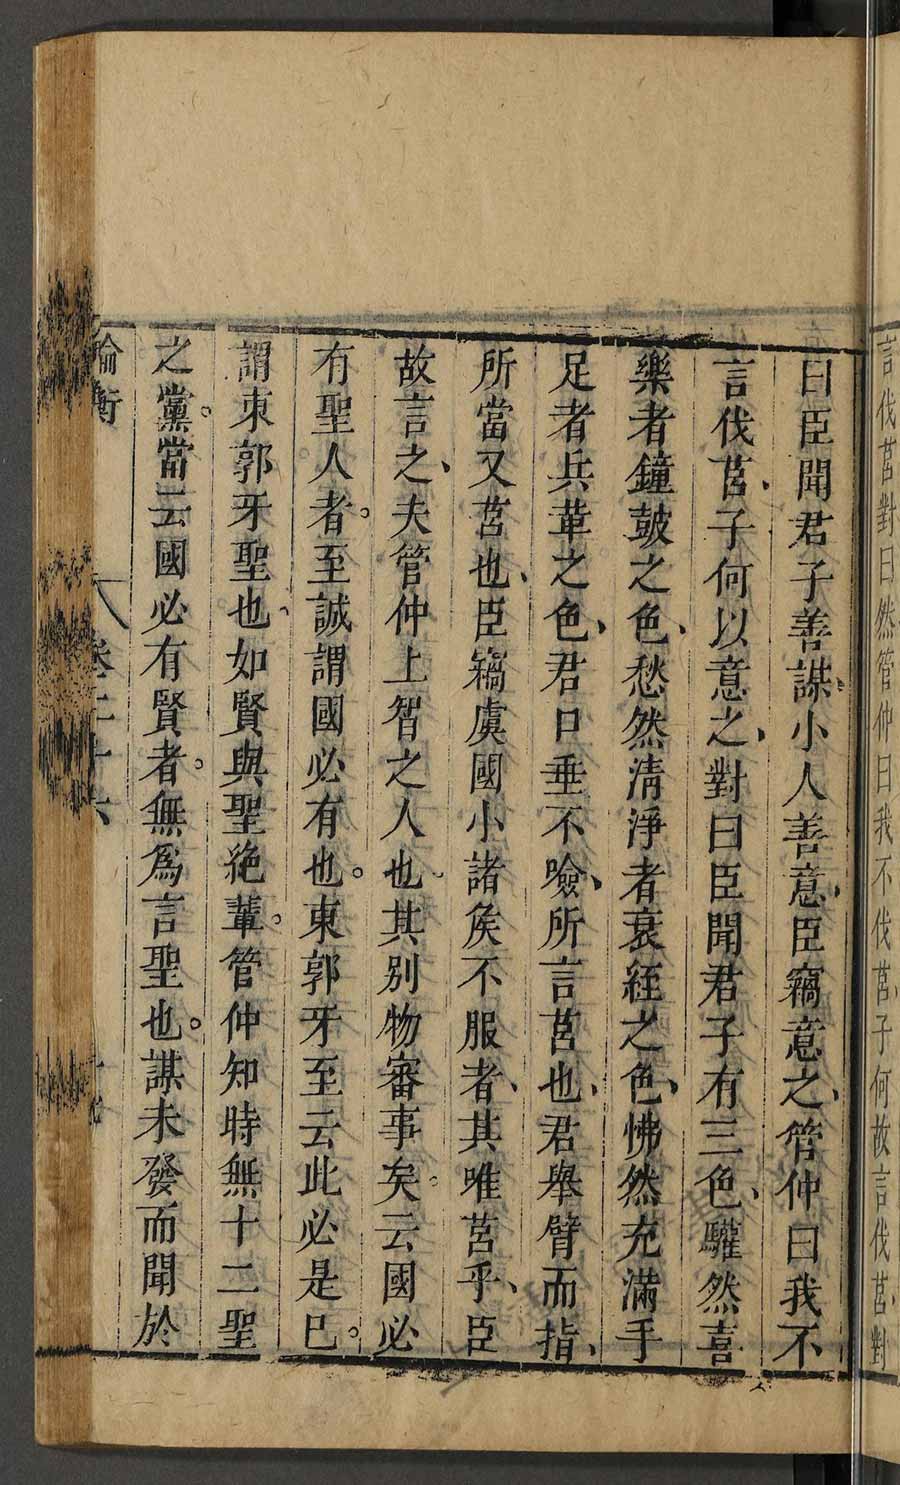 言伐莒對曰然管仲曰我不伐莒子何故言伐莒對
曰臣聞君子善謀小人善意臣竊意之管仲曰我不
言伐莒子何以意之對曰臣聞君子有三色驩然喜
樂者鐘皷之色愁然清淨者衰絰之色怫然充滿手
足者兵革之色君口垂不噞所言莒也君舉臂而指
所當又莒也臣竊虞國小諸矦不服者其唯莒乎臣
故言之夫管仲上智之人也其别物審事矣云國必
有聖人者至誠謂國必有也東郭牙至云此必是已
謂東郭牙聖也如賢與聖絶輩管仲知時無十二聖
之黨當云國必有賢者無爲言聖也謀未發而聞於
論衡
卷二十六